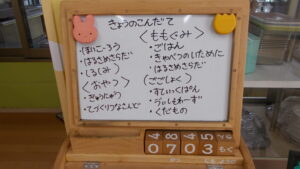 きょうのこんだて
・ほいこーろう
・はるさめさらだ
・しるしみ
〈おやつ〉
・ぎゅうにゅう
・てづくりつなさんど
〈ももぐみ〉
・ごはん
・きゃべつのいために
・はるさめさらだ
(ごごしょく)
・すてぃっくぱん
・くだもの
4 8 4 5
0 7 0 3